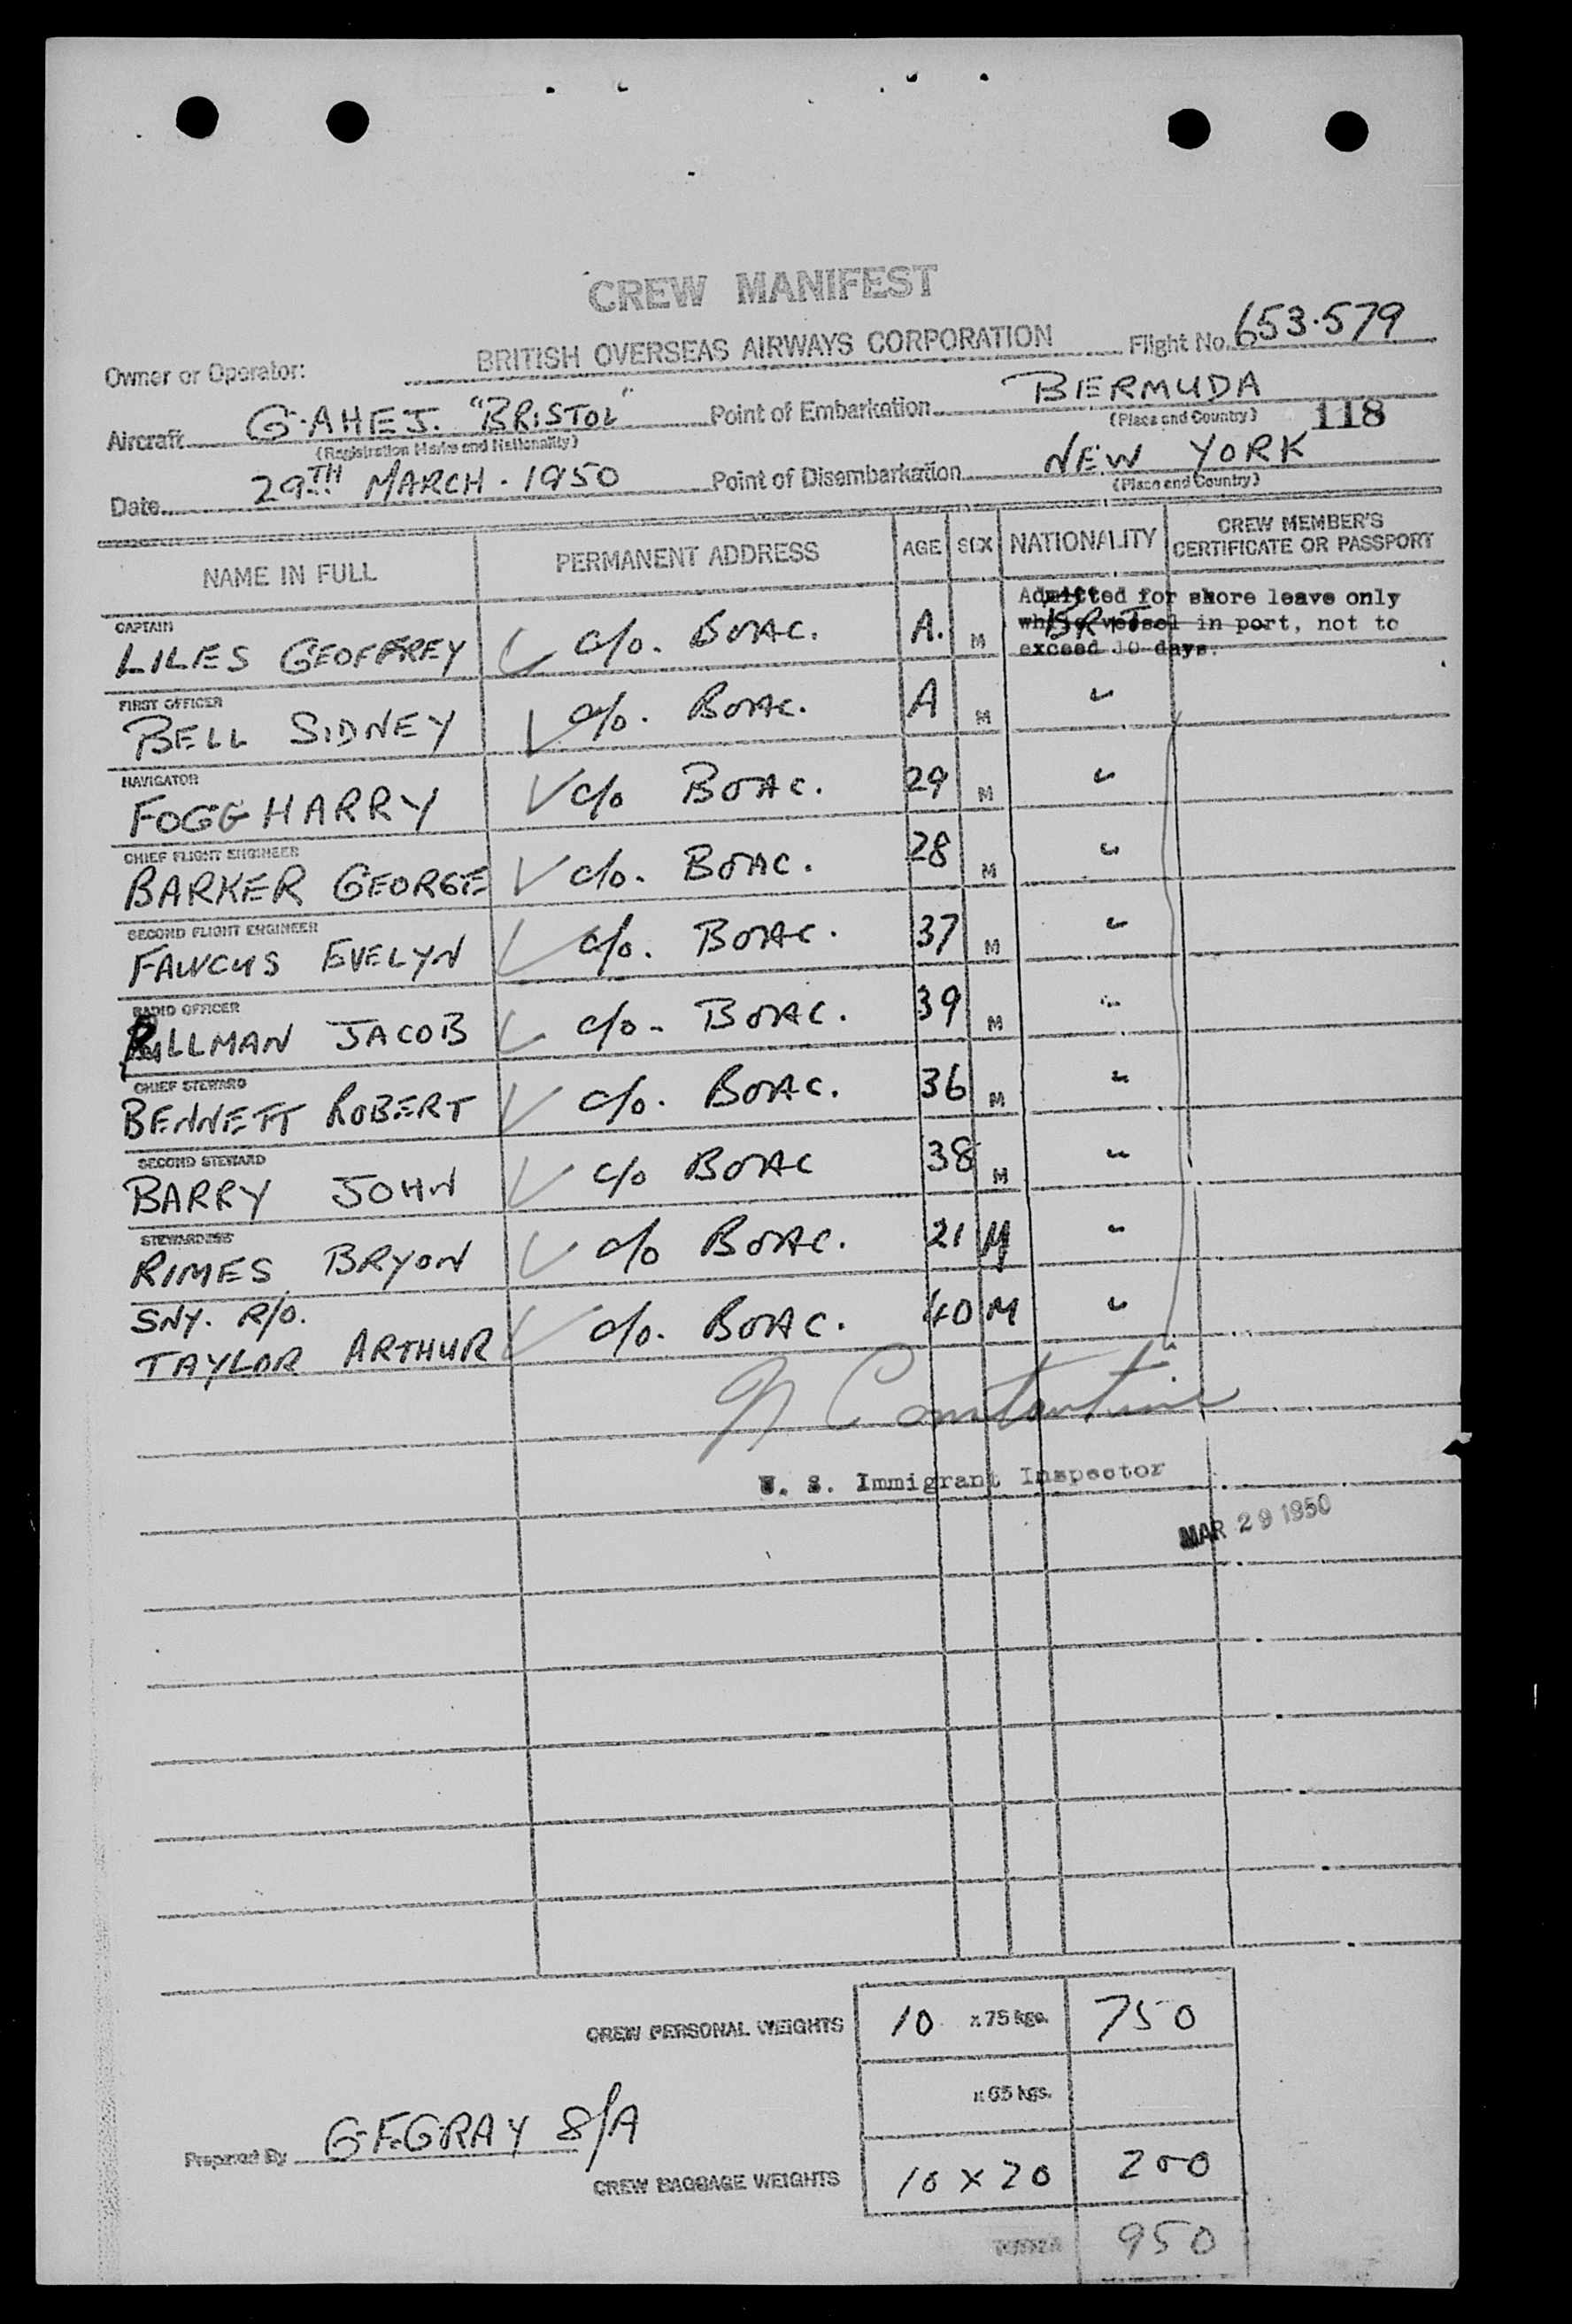 CREW MANIFEST
Owner or Operator: BRITISH OVERSEAS AIRWAYS CORPORATION Flight No. 653·579
Aircraft G·AHEJ. "BRISTOL" Point of Embarkation BERMUDA
(Registration Marks and Nationality) (Place and Country) 118
Date 29TH MARCH · 1950 Point of Disembarkation NEW YORK
(Place and Country)
NAME IN FULL PERMANENT ADDRESS AGE SEX NATIONALITY CREW MEMBER'S CERTIFICATE OR PASSPORT
Admitted for shore leave only
while vessel in port, not to
exceed 10 days.
CAPTAIN
LILES GEOFFREY c/o. BOAC. A. M BRIT
FIRST OFFICER
BELL SIDNEY c/o. BOAC. A M "
NAVIGATOR
FOGG HARRY c/o BOAC. 29 M "
CHIEF FLIGHT ENGINEER
BARKER GEORGE c/o. BOAC. 28 M "
SECOND FLIGHT ENGINEER
FAWCUS EVELYN c/o. BOAC. 37 M "
RADIO OFFICER
JACOB c/o. BOAC. 39 M "
CHIEF STEWARD
BENNETT ROBERT c/o. BOAC. 36 M "
SECOND STEWARD
BARRY JOHN c/o BOAC 38 M "
STEWARDESS
RIMES BRYON c/o BOAC. 21 M "
SNY. R/O.
TAYLOR ARTHUR c/o. BOAC. 40 M "
Constantine
U. S. Immigrant Inspector
MAR 29 1950
CREW PERSONAL WEIGHTS 10 x 75 kgs. 750
x 65 kgs.
Prepared By G.F.GRAY S/A
CREW BAGGAGE WEIGHTS 10 x 20 200
950